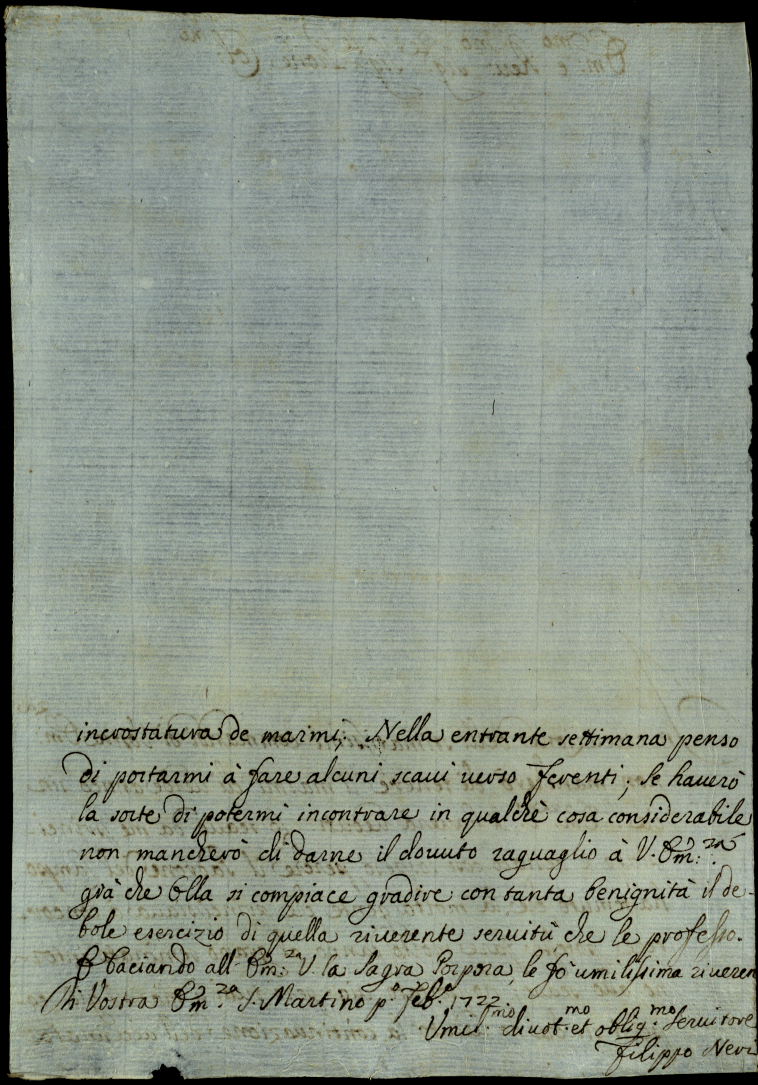 incrostatura de marmi; Nella entrante settimana penso
di portarmi à fare alcuni scaui uerso Ferenti; Se hauerò
la sorte di potermi incontrare in qualche cosa considerabile
non mancherò di darne il douuto raguaglio à V. Em:za
già che Ella si compiace gradire con tanta benignità il de-
bole esercizio di quella riuerente seruitù che le professo.
E baciando all' Em:za V. la Sagra Porpora, le fò umilissima riueren
Di Vostra Em:za S. Martino po Feb.o 1722
Umil.mo diuot.mo et oblig.mo Seruitore
Filippo Neri